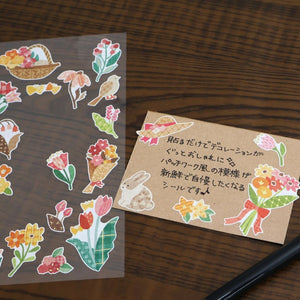 貼るだけでデコレーションが
ぐっとおしゃれに♪♪
パッチワーク風の模様が
新鮮で自慢したくなる
シールです♪